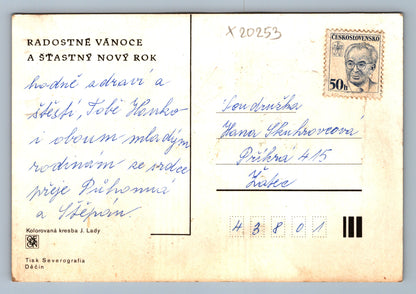 X 20253
RADOSTNÉ VÁNOCE
A ŠŤASTNÝ NOVÝ ROK
hodně zdraví a
štěstí, Tobě Hanko
i oboum mladým
rodinám ze srdce
přeje
a Štěpán.
Kolorovaná kresba J. Lady
Tisk Severografia
Děčín
ČESKOSLOVENSKO
50h
Soudružka
Hana Skuhrovcova
415
Žatec
43801